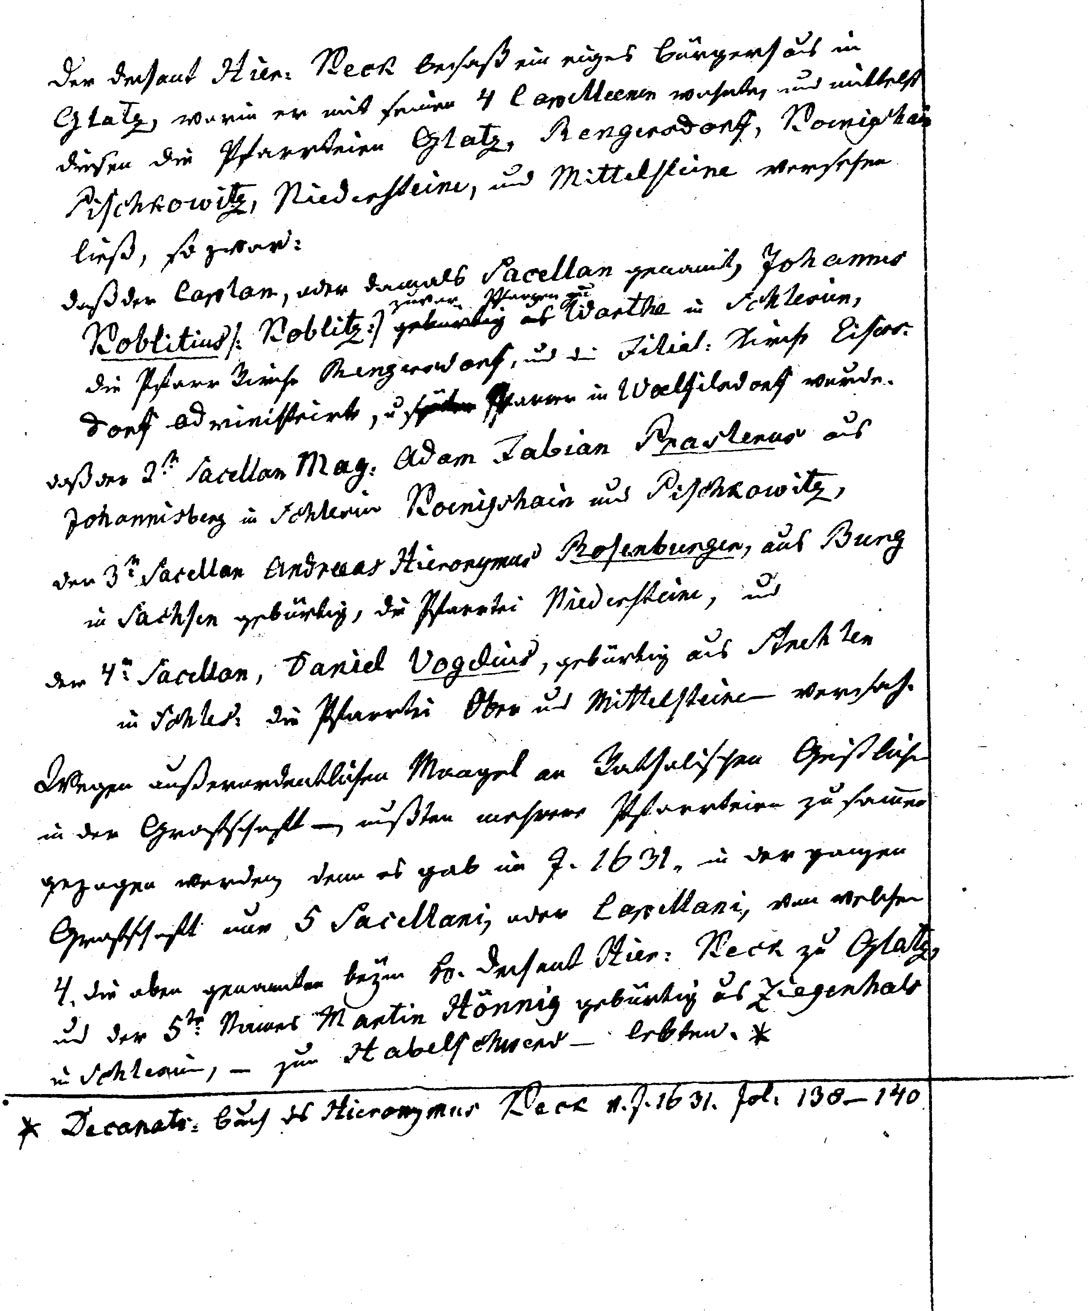 Der Dechant Hier: Keck besaß ein eignes Bürgerhaus in
Glatz, worin er mit seinen 4 Capellanen wohnte, und mittelst
diesen die Pfarrteien Glatz, Rengersdorff, Koenigshain
Pischkowitz, Niedersteine, und Mittelsteine versehen
ließ, so zwar:
daß der Caplan, oder damals Sacellan genannt, Johannes
Koblitius /: Koblitz :/ gebürtig aus Wartha in Schlesien,
zuvor Pfarrer zu
die Pfarr Kirche Rengersdorf, und die Filial: Kirche Eisers-
dorf administrirte, u später Pfarrer in Woelfelsdorf wurde.
daß der 2te Sacellan Mag: Adam Fabian Prastenus aus
Johannisberg in Schlesien Koenigshain und Pischkowitz,
der 3te Sacellan Andreas Hieronymus Rosenburger, aus Burg
in Sachsen gebürtig, die Pfarrtei Niedersteine, und
der 4te Sacellan, Daniel Vogelius, gebürtig aus
in Schles: die Pfarrtei Ober und Mittelsteine versah.
Wegen außerordentlichen Mangel an Katholischen Geistlichen
in der Grafschaft – mußten mehrere Pfarrteien zusammen
gezogen werden, denn es gab im J. 1631. in der ganzen
Grafschaft nur 5 Sacellani, oder Capellani, von welchen
4. die oben genannten beym H. Dechant Hier: Keck zu Glatz,
und der 5te Namens Martin Hönnig gebürtig aus Ziegenhals
in Schlesien, – zu Habelschwerd – lebten. *
* Decanats: Buch des Hieronymus Keck v. J. 1631. Fol: 138–140